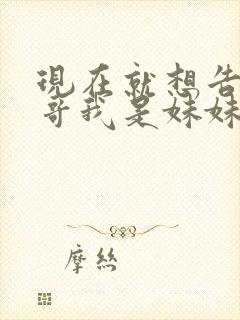 現在就想告
哥我是妹妹
摩絲